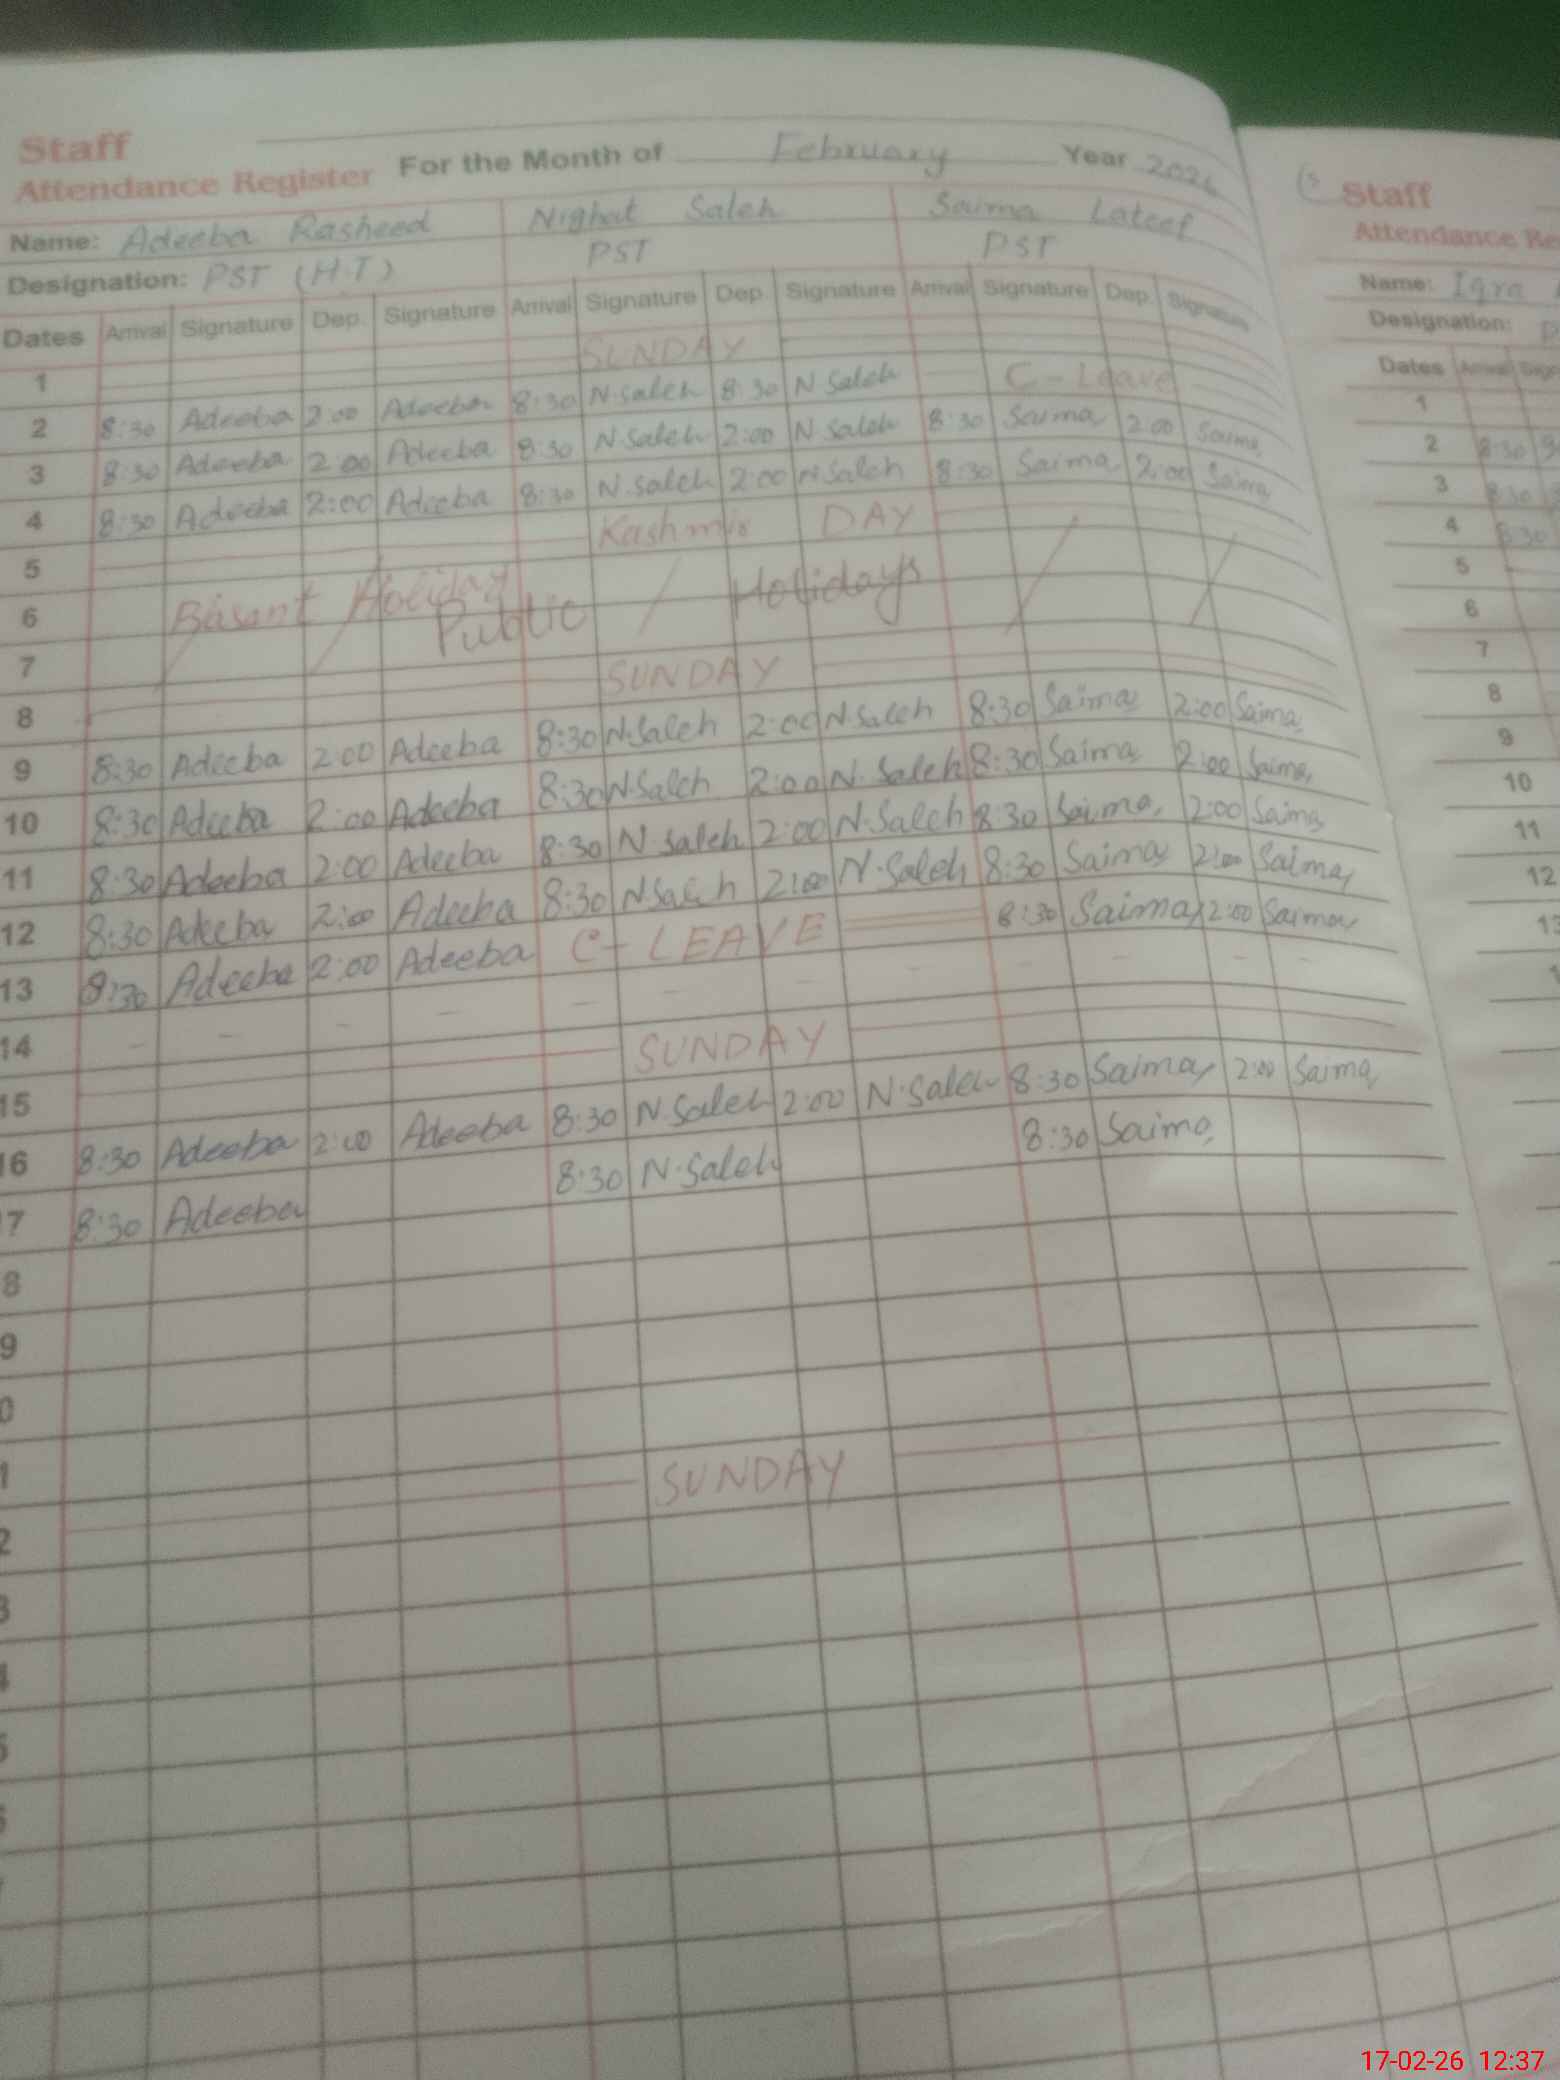 Staff
Attendance Register For the Month of February Year 2026
Name: Adeeba Rasheed Nighat Saleh Saima Lateef
Designation: PST (H.T) PST PST
Dates Arrival Signature Dep. Signature Arrival Signature Dep. Signature Arrival Signature Dep. Signature
1 SUNDAY
2 8:30 Adeeba 2:00 Adeeba 8:30 N.Saleh 8:30 N Saleh C-Leave
3 8:30 Adeeba 2:00 Adeeba 8:30 N.Saleh 2:00 N Saleh 8:30 Saima 2:00 Saima
4 8:30 Adeeba 2:00 Adeeba 8:30 N.Saleh 2:00 N Saleh 8:30 Saima 2:00 Saima
5 Kashmir DAY
6 Basant Holiday Public Holidays
7
8 SUNDAY
9 8:30 Adeeba 2:00 Adeeba 8:30 N.Saleh 2:00 N.Saleh 8:30 Saima 2:00 Saima
10 8:30 Adeeba 2:00 Adeeba 8:30 N.Saleh 2:00 N.Saleh 8:30 Saima 2:00 Saima
11 8:30 Adeeba 2:00 Adeeba 8:30 N Saleh 2:00 N.Saleh 8:30 Saima 2:00 Saima
12 8:30 Adeeba 2:00 Adeeba 8:30 N.Saleh 2:00 N.Saleh 8:30 Saima 2:00 Saima
13 8:30 Adeeba 2:00 Adeeba C-LEAVE 8:30 Saima 2:00 Saima
14 - - - - - - - - - -
15 SUNDAY
16 8:30 Adeeba 2:00 Adeeba 8:30 N.Saleh 2:00 N.Saleh 8:30 Saima 2:00 Saima
7 8:30 Adeeba 8:30 N.Saleh 8:30 Saima
8
9
0
1 SUNDAY
2
3
Staff
Attendance Re
Name: Iqra
Designation: P
Dates
1
2 8:30
3 8:30
4 8:30
5
6
7
8
9
10
11
12
13
17-02-26 12:37